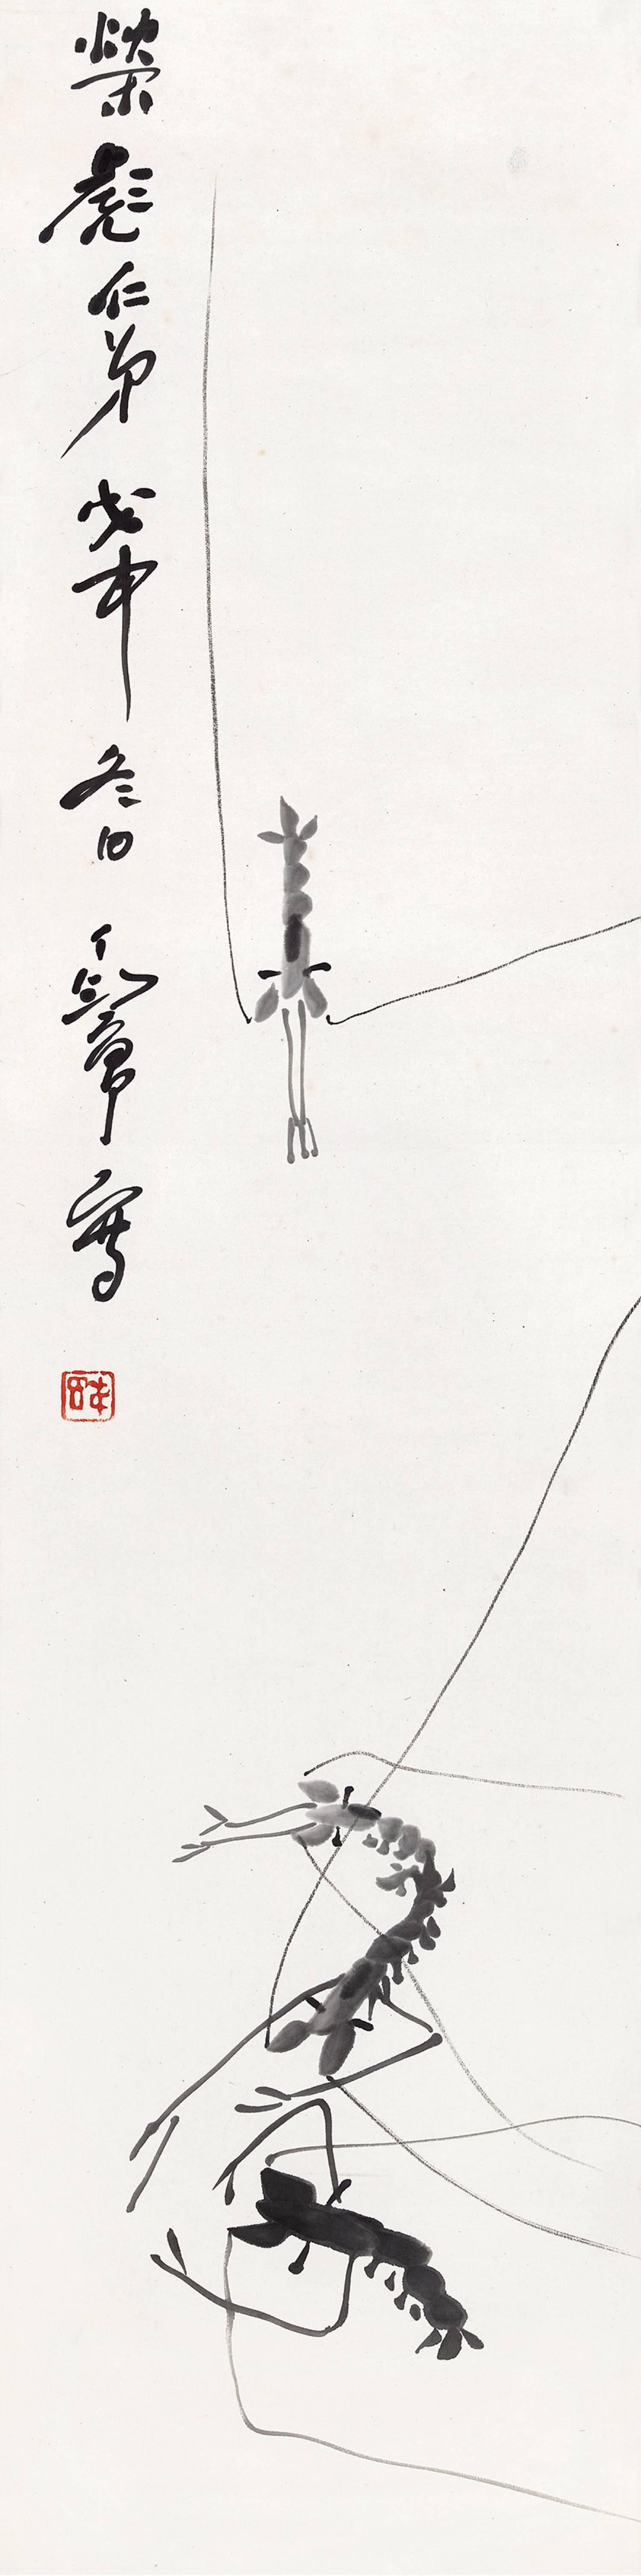 榮彪仁弟 戊申冬日 丁衍庸寫